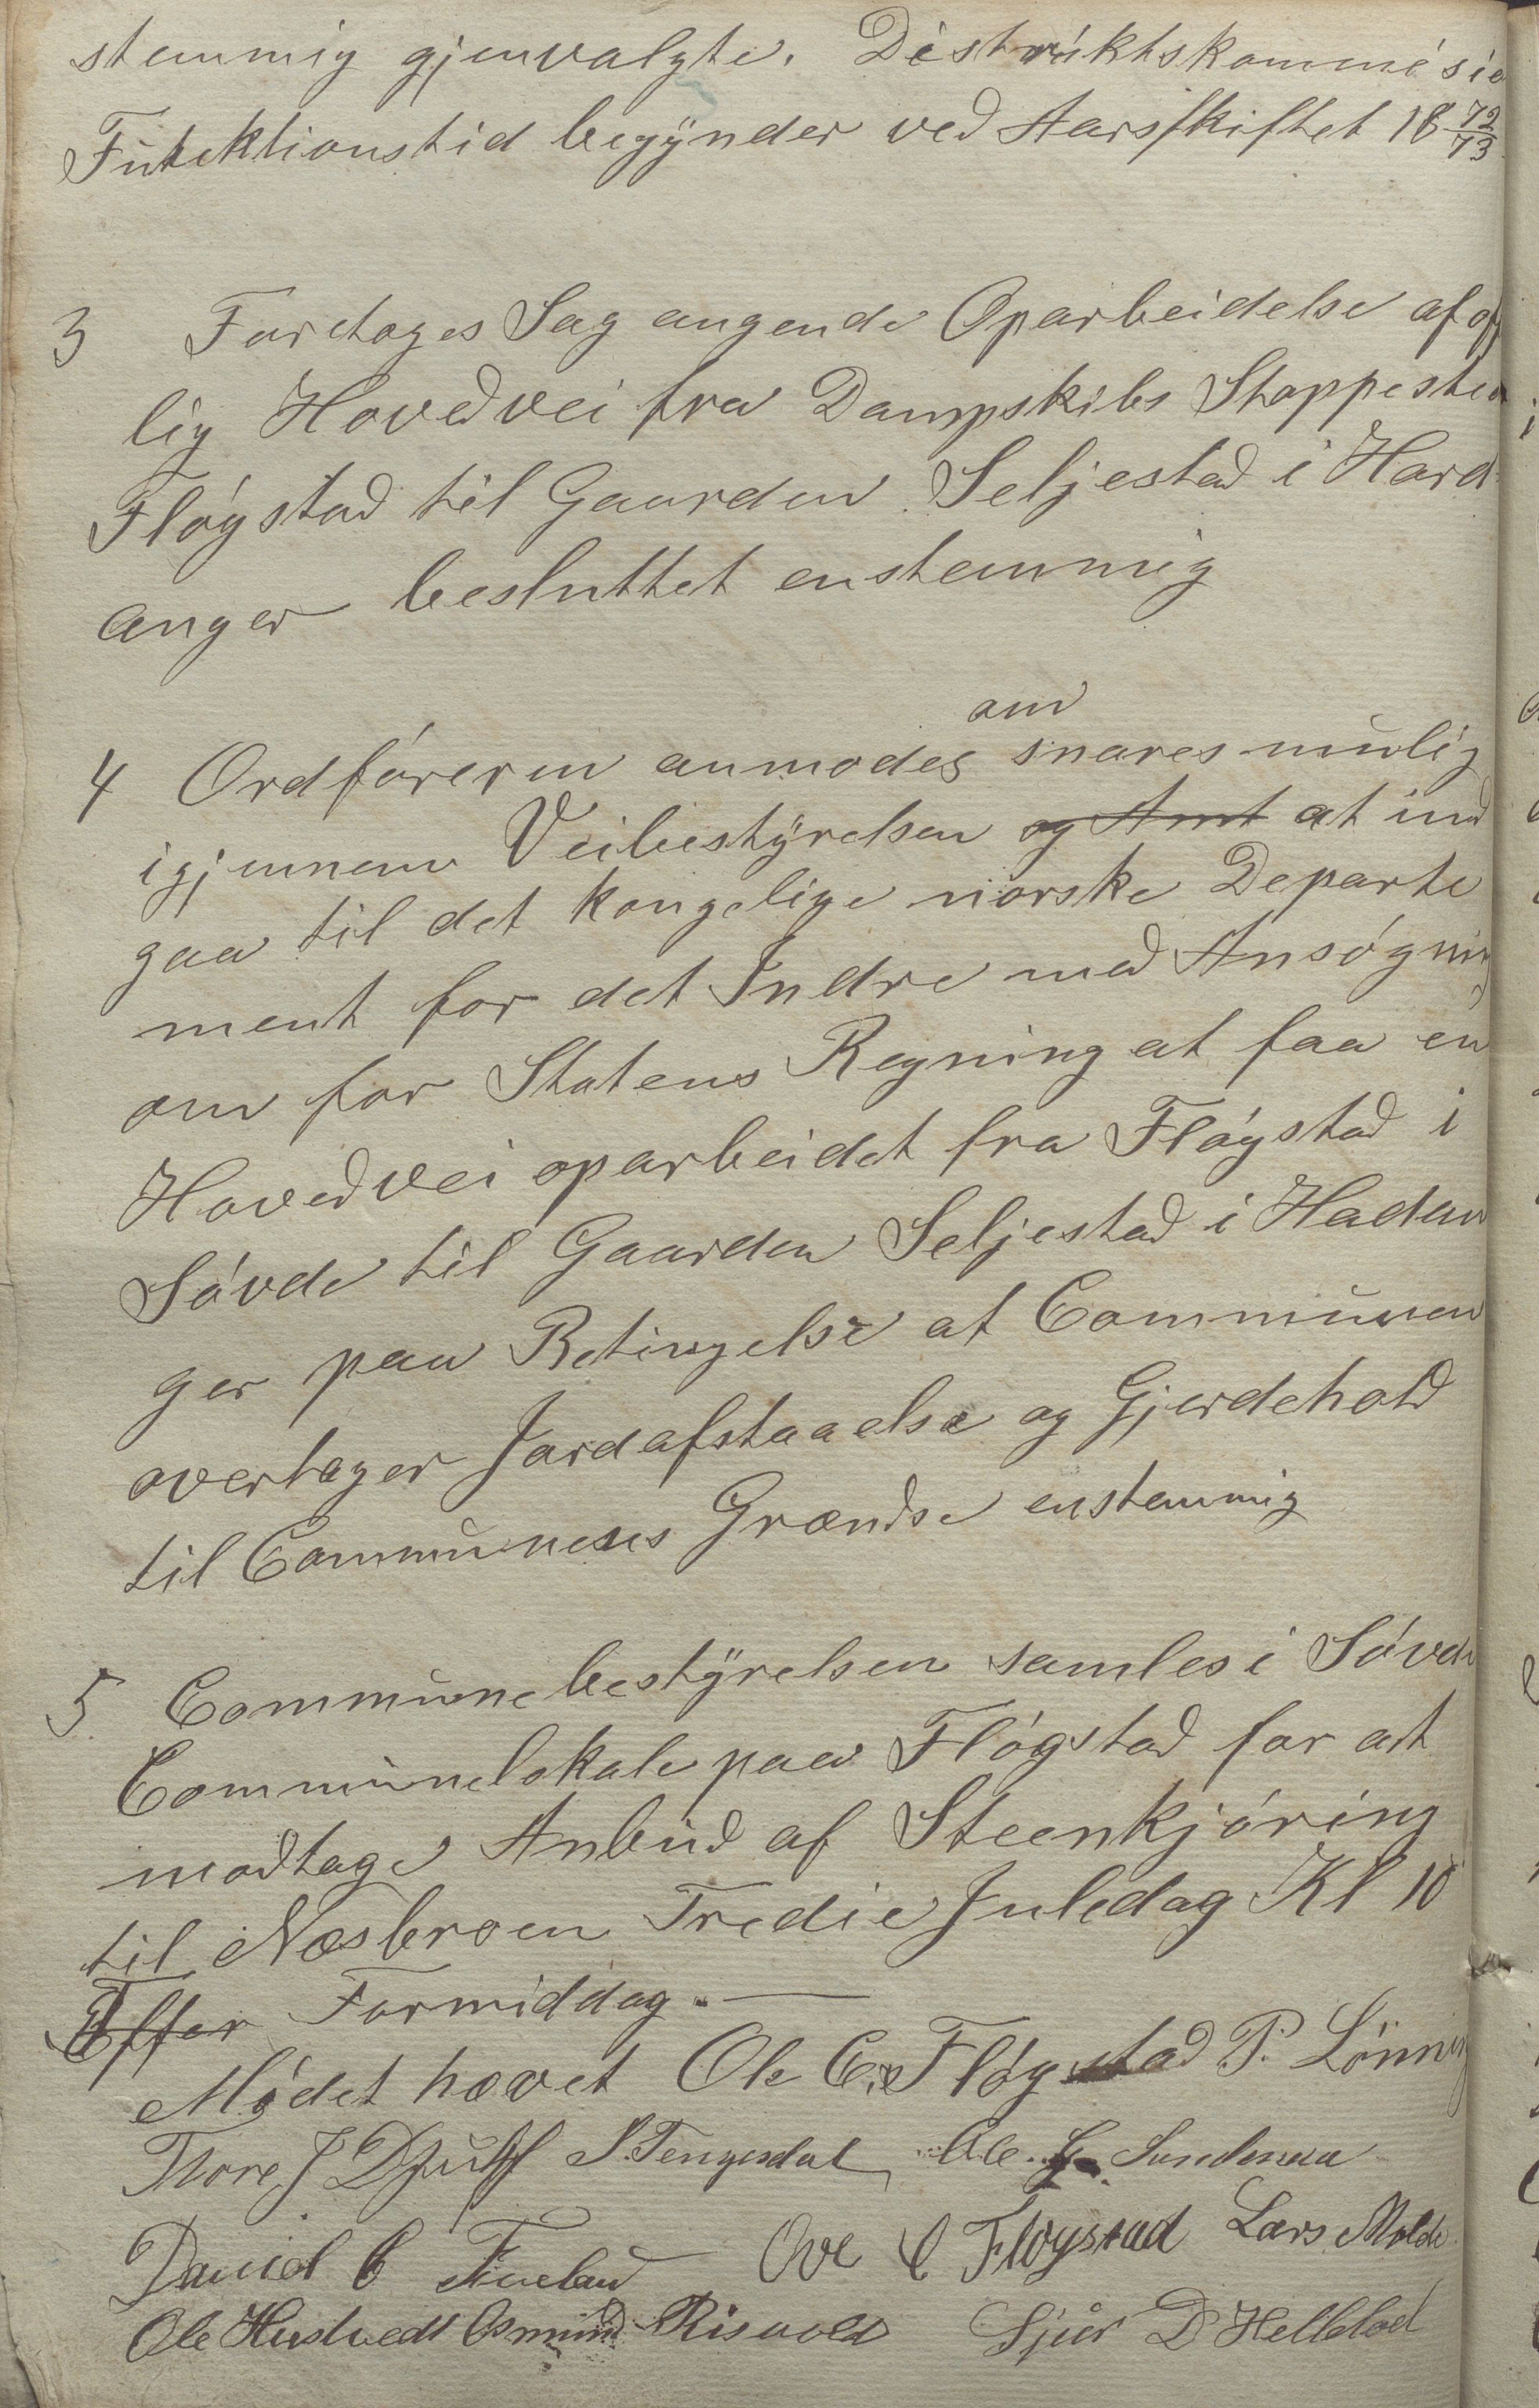 stemmig gjenvalgte. Distriktskommisio
Funktionstid begynder ved Aarsskiftet 18 72/73
3 Foretoges Sag angende Oparbeidelse af off
lig Hovedvei fra Dampskibs Stoppested
Fløgstad til Gaarden Seljestad i Hard-
anger besluttet enstemmig
om
4 Ordføreren anmodes snares mulig
igjennem Veibestyrelsen og Amt at ind
gaa til det kongelige norske Departe
ment for det Indre med Ansøgning
om for Statens Regning at faa en
Hovedvei oparbeidet fra Fløgstad i
Søvde til Gaarden Seljestad i Hadan
ger paa Betingelse at Communen
overtager Jordafstaaelse og Gjerdehold
til Communens Grændse enstemmig
5 Communebestyrelsen samles i Søvde
Communelokale paa Fløgstad for at
modtage Anbud af Steenkjøring
til Næsbroen Tredie Juledag Kl 10
Efter Formiddag.
Mødet hævet Ole C. Fløgstad P. Lønning
Thore J Djuff S. Tengesdal Ole G. Sandenaa
Daniel C Fineland Ove C Fløgstad Lars Molde
Ole Hustvedt Osmund Risvold Sjur D Helleland